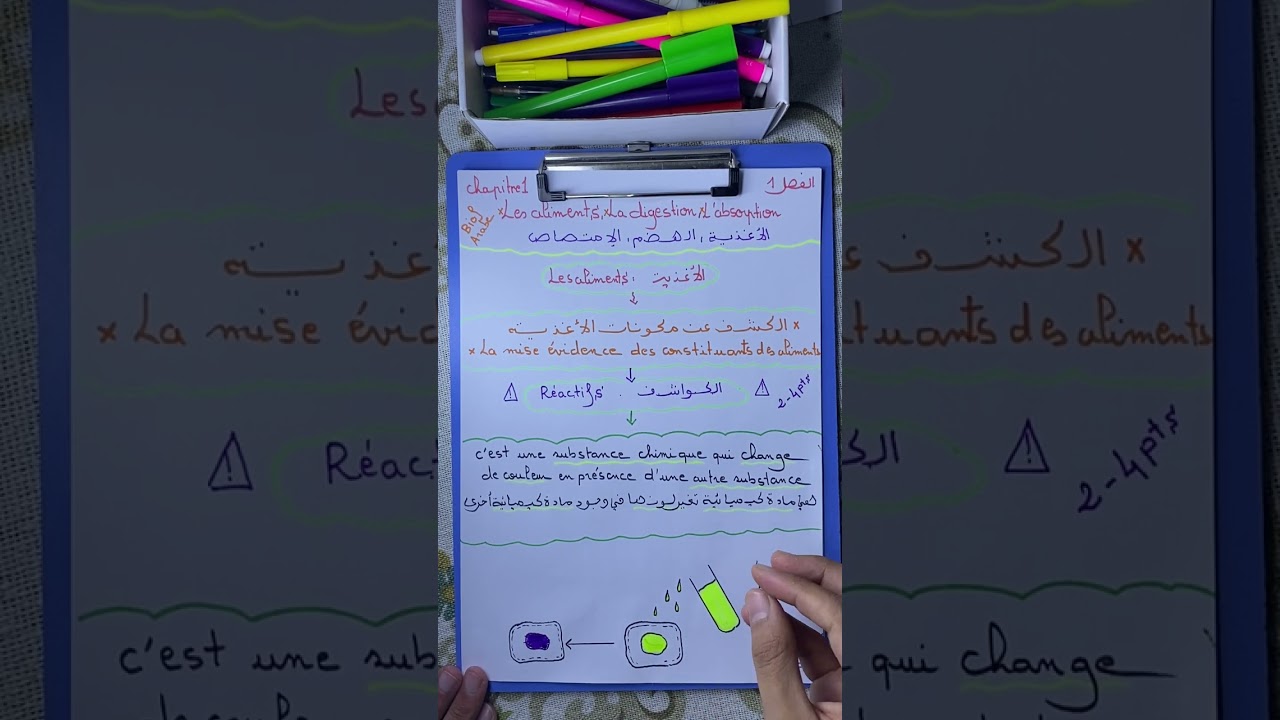 chapitre1 الفصل 1
Biof Arabe
×Les aliments,×La digestion×L'absorption
الأغذية, الهضم, الإمتصاص
Les aliments, الأغذية
× الكشف عن مكونات الأغذية
× La mise évidence des constituants des aliments
⚠ Réactifs . الكواشف ⚠ 2-4pts
c'est une substance chimique qui change
de couleur en présence d'une autre substance
هي مادة كيميائية تغير لونها في وجود مادة كيميائية أخرى